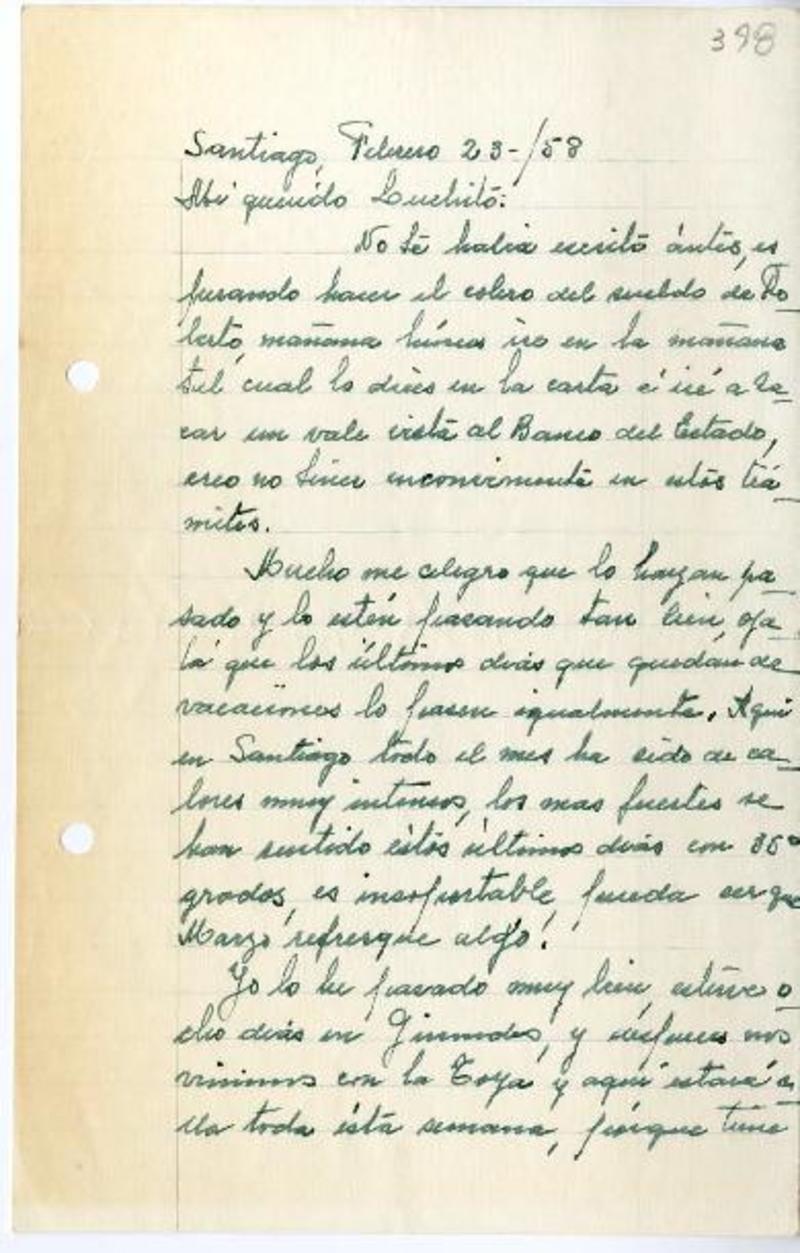 398
Santiago, Febrero 23-/58
Mi querido Luchito:
No té habia escrito ántes, es
perando hacer el cobro del sueldo de Ro_
berto, mañana lúnes iré en la mañana
tal cual lo dices en la carta é iré a sa_
car un vale vista al Banco del Estado,
creo no tener inconvenienté en estós trá_
mites.
Mucho me alegro que lo hayan pa_
sado y lo estén pasando tan bien, oja_
lá que los últimos dias que quedan de
vacaciones lo pasen igualmente. Aqui
en Santiago todo el mes ha sido de ca_
lores muy intensos, los mas fuertes se
han sentido éstos últimos dias con 35°
grados, es insoportable, pueda ser que
Marzo refresque algo!
Yo lo he pasado muy bien, estuve o_
cho dias en, y despues nos
vinimos con la Toya y aqui estará e_
lla toda ésta semana, porque tiene